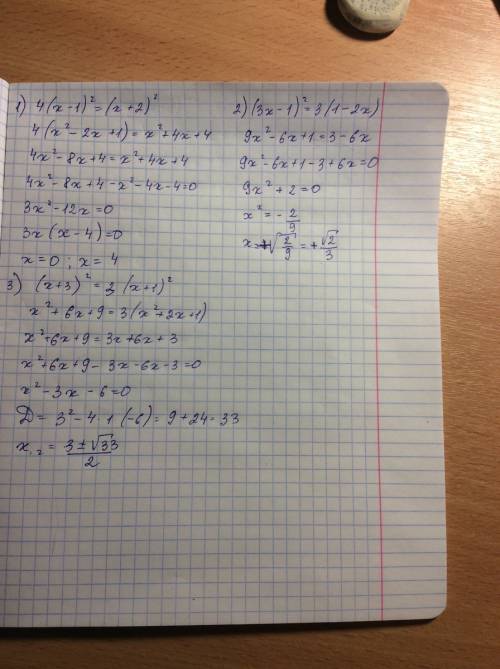 1) 4(x-1)² = (x+2)²
4(x² - 2x + 1) = x² + 4x + 4
4x² - 8x + 4 = x² + 4x + 4
4x² - 8x + 4 - x² - 4x - 4 = 0
3x² - 12x = 0
3x(x - 4) = 0
x = 0 ; x = 4
2) (3x-1)² = 3(1-2x)
9x² - 6x + 1 = 3 - 6x
9x² - 6x + 1 - 3 + 6x = 0
9x² + 2 = 0
x² = - 2/9
x = ±√(2/9) = ±√2/3
3) (x+3)² = 3(x+1)²
x² + 6x + 9 = 3(x² + 2x + 1)
x² + 6x + 9 = 3x + 6x + 3
x² + 6x + 9 - 3x - 6x - 3 = 0
x² - 3x - 6 = 0
D = 3² - 4 · 1 (-6) = 9 + 24 = 33
x₁,₂ = (3 ± √33)/2